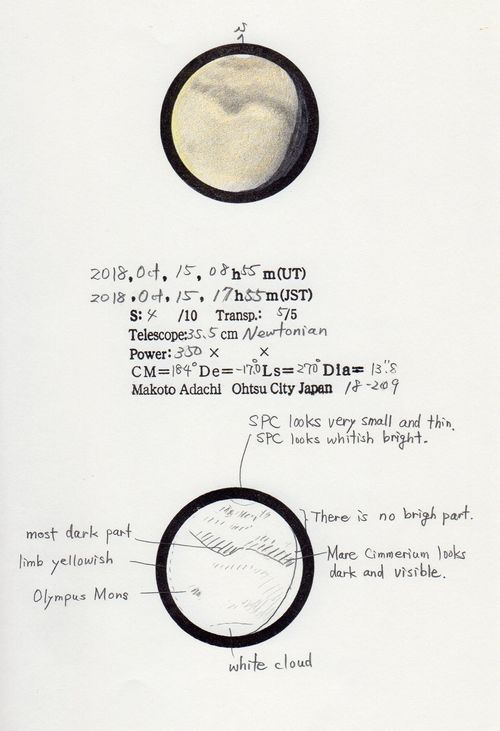 S
2018, Oct, 15, 08h55m(UT)
2018, Oct, 15, 17h55m(JST)
S: 4 /10 Transp.: 5/5
Telescope: 35.5 cm Newtonian
Power: 350 × ×
CM=184° De=-17.0° Ls=270° Dia= 13.″8
Makoto Adachi Ohtsu City Japan 18-209
SPC looks very small and thin.
SPC looks whitish bright.
There is no brigh part.
most dark part
Mare Cimmerium looks
dark and visible.
limb yellowish
Olympus Mons
white cloud